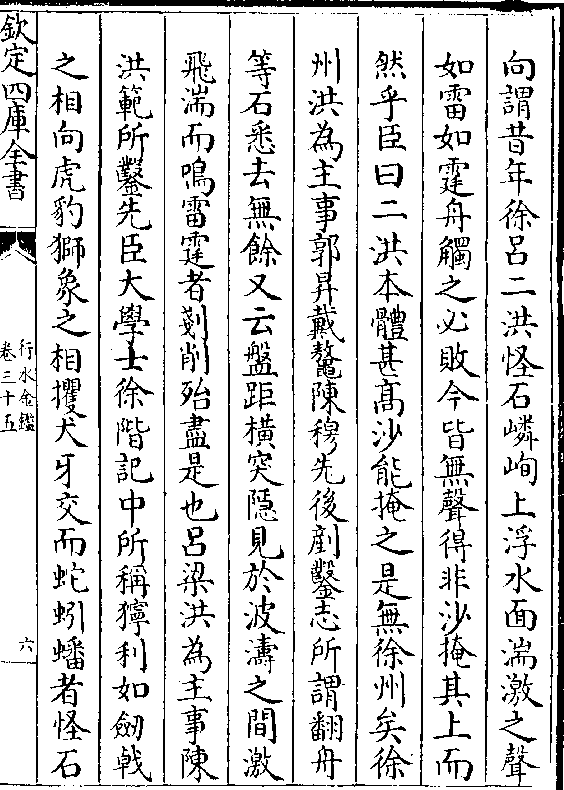 向謂昔年徐呂二洪怪石嶙峋上浮水面湍激之聲
如雷如霆舟觸之必敗今皆無聲得非沙掩其上而
然乎臣曰二洪本體甚髙沙能掩之是無徐州矣徐
州洪為主事郭昇戴鼇陳穆先後剷鑿志所謂翻舟
等石悉去無餘又云盤距橫突隱見於波濤之間激
飛湍而鳴雷霆者剗削殆盡是也呂梁洪為主事陳
洪範所鑿先臣大學士徐階記中所稱獰利如劒戟
之相向虎豹獅象之相攫犬牙交而蛇蚓蟠者怪石
欽定四庫全書
行水金鑑
卷三十五
六